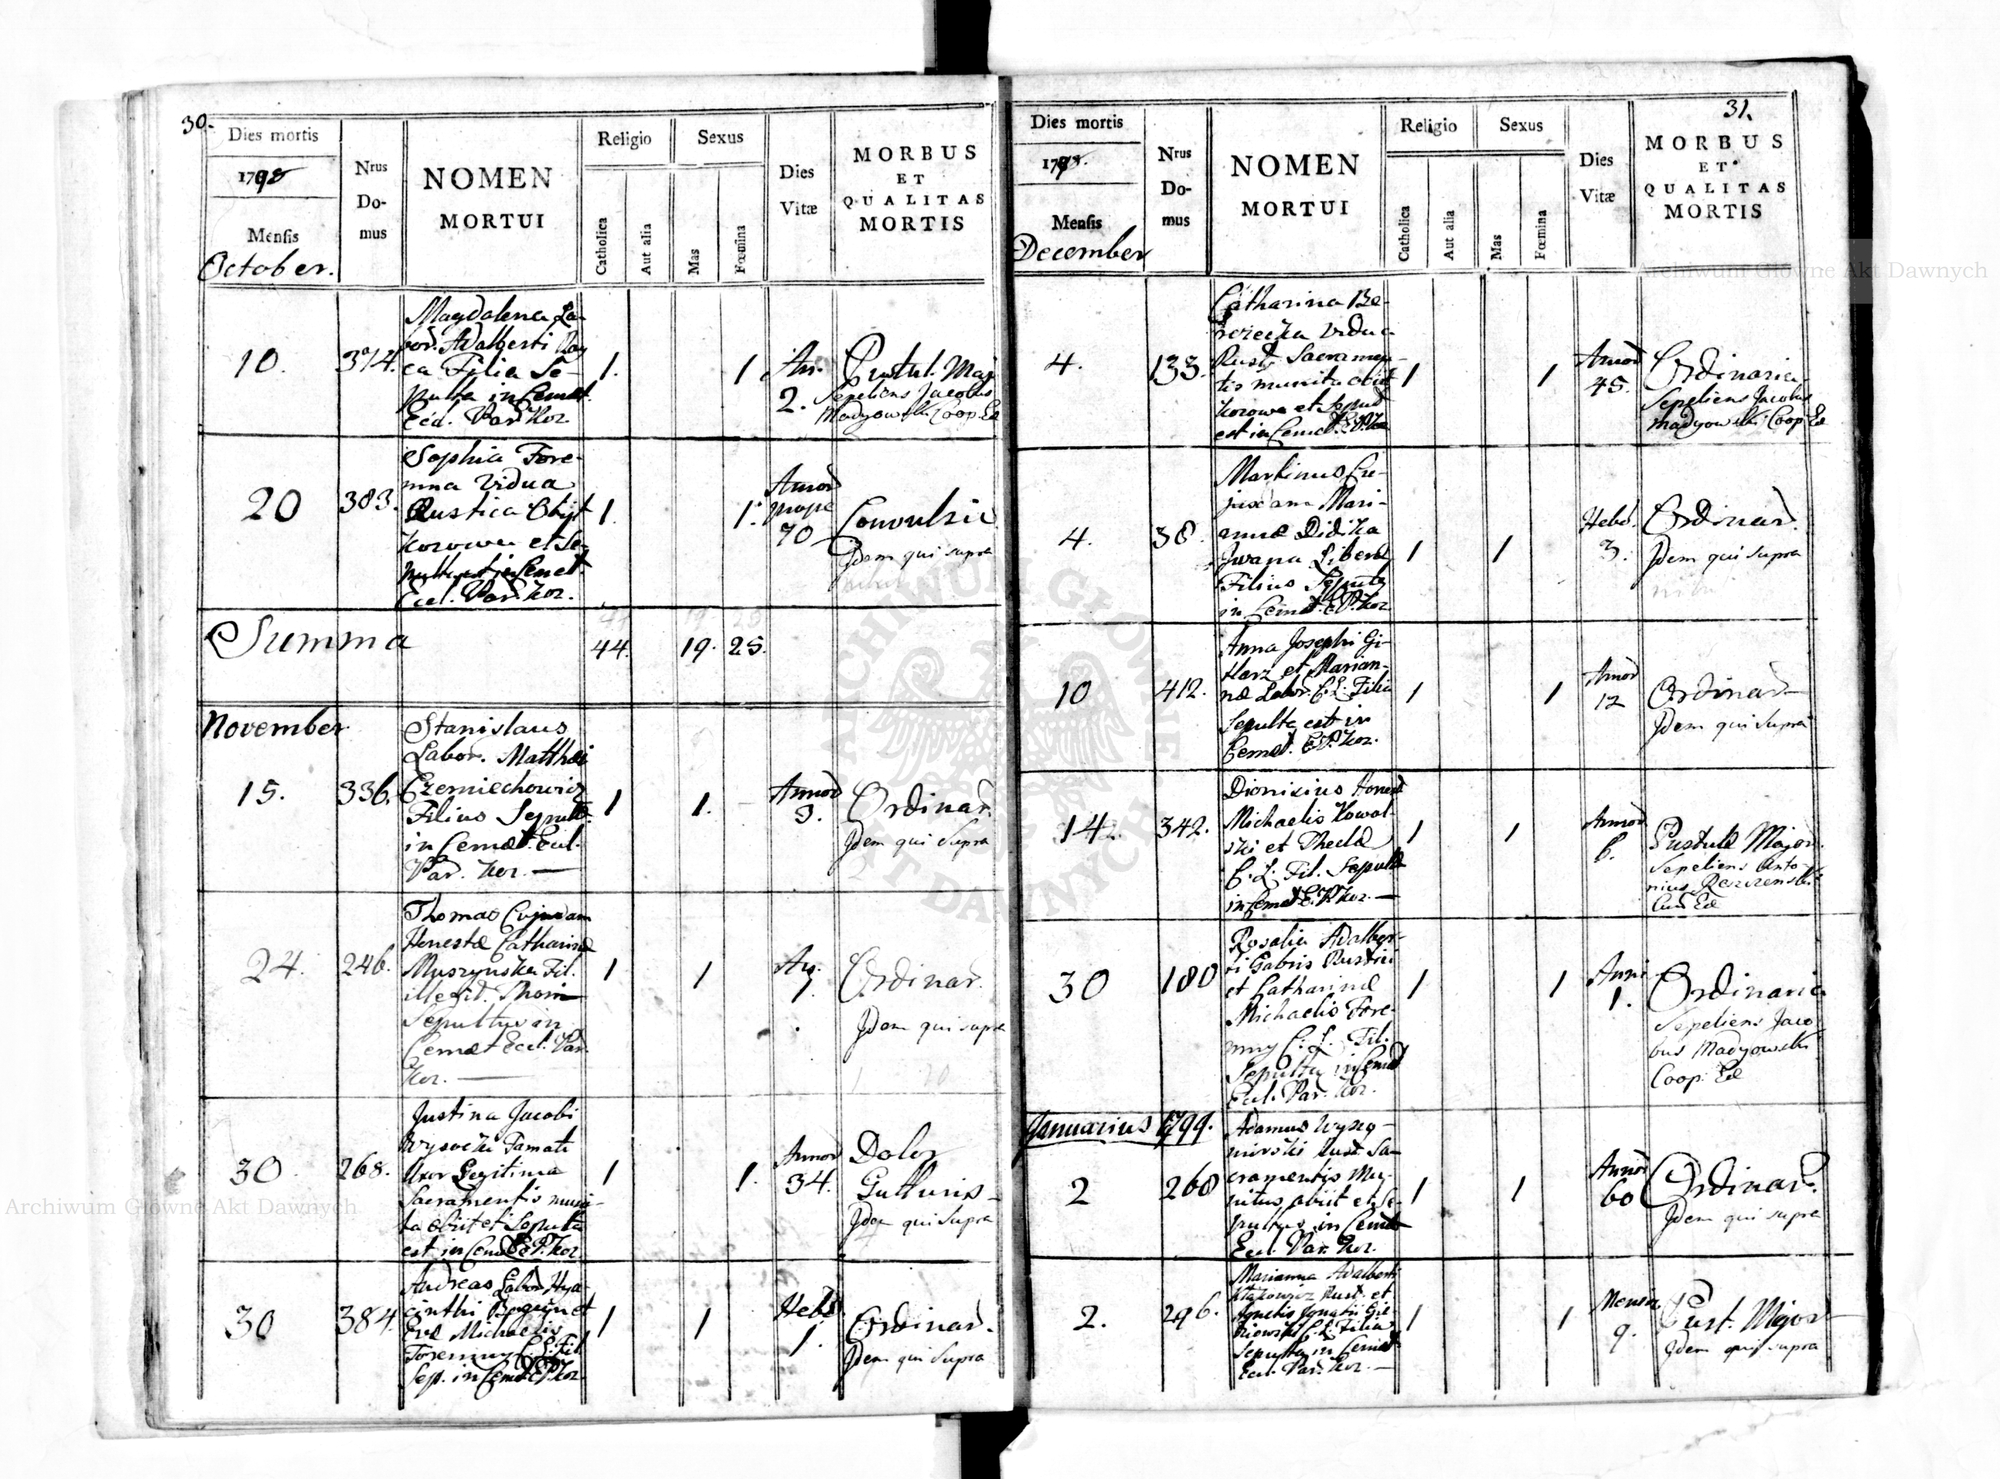 30.
Dies mortis
1798
Mensis
October.
Nrus
Do-
mus
NOMEN
MORTUI
Religio
Catholica
Aut alia
Sexus
Mas
Fœmina
Dies
Vitæ
MORBUS
ET
QUALITAS
MORTIS
10.
374.
Magdalena La-
bor. Adalberti
ca Filia Se-
pulta in Cemet.
Eccl. Par. Kor.
1.
1
An.
2.
Pustul. Maj
Sepeliens Jacobus
Madyowski Coop. Ec
20
383.
Sophia Fore-
mna Vidua
Rustica Obijt
Korowa et Se-
pulta est in Cemet.
Eccl. Par. Kor.
1.
1.
Annor
prope
70
Convulsio
Idem qui supra
Summa
44.
19.
25.
November
15.
336.
Stanislaus
Labor. Matthæi
Czerniechowicz
Filius Sepult.
in Cemet. Eccl.
Par. Kor. —
1
1.
Annor
3.
Ordinar.
Idem qui Supra
24.
246.
Thomas Cujusdam
Honestæ Catharinæ
Muszynska Fil.
illegit. Thori
Sepultus in
Cemet Eccl. Par.
Kor. —
1
1
An.
1.
Ordinar.
Idem qui supra
30.
268.
Justina Jacobi
Wysocki Famati
Uxor Legitima
Sacramentis muni-
ta obiit et Sepulta
est in Cem. E. P. Kor
1
1.
Annor
34.
Dolor
Gutturis -
Idem qui Supra
30
384.
Andreas Labor. Hya-
cinthi et
Evæ Michaelis
Foremny C. L. Fil.
Sep. in Cemet. E. P. Kor
1
1
Hebd.
1.
Ordinar.
Idem qui Supra
31.
Dies mortis
1798.
Mensis
December
Nrus
Do-
mus
NOMEN
MORTUI
Religio
Catholica
Aut alia
Sexus
Mas
Fœmina
Dies
Vitæ
MORBUS
ET
QUALITAS
MORTIS
4.
133.
Catharina Be-
rezecka Vidua
Rust. Sacramen-
tis munita obiit
Korowa et Sepul
est in Cemet. E. P. Kor
1
1
Annor
45.
Ordinaria
Sepeliens Jacobus
Madyowski Coop. Ec
4.
38.
Martinus Cu-
jusdam Mari-
annæ Didika
Iwana Libera
Filius Sepult
in Cemet. E. P. Kor
1
1
Hebd.
3.
Ordinar.
Idem qui supra
10
412.
Anna Josephi Gi-
tlarz et Marian-
næ Labor. C. L. Filia
Sepulta est in
Cemet. E. P. Kor.
1
1
Annor
12
Ordinar
Idem qui Supra
14.
342.
Dionisius Honest
Michaelis Kowal-
ski et Theclæ
C. L. Fil. Sepult
in Cemet. E. P. Kor. —
1
1
Annor
6.
Pustulæ Major.
Sepeliens Anto-
nius
Cur. Ec
30
180
Rosalia Adalber-
ti Gabris Rustici
et Catharinæ
Michaelis Fore-
mny C. L. Fil.
Sepulta in Cemet
Eccl. Par. Kor.
1
1
Anni
1.
Ordinaria
Sepeliens Jaco
bus Madyowski
Coop. Ec
Januarius 1799.
2
268
Adamus Wyseg-
mirski Rust. Sa-
cramentis Mu-
nitus obiit et Se-
pultus in Cemet
Eccl. Par. Kor.
1
1
Annor
60
Ordinar.
Idem qui supra
2.
296.
Marianna Adalberti
Rust. et
Agnetis Ignatii
C. L. Filia
Sepulta in Cemet
Eccl. Par. Kor. —
1
1
Mensor
9.
Pust. Major
Idem qui supra
Archiwum Główne Akt Dawnych
Archiwum Główne Akt Dawnych
ARCHIWUM GŁÓWNE
AKT DAWNYCH